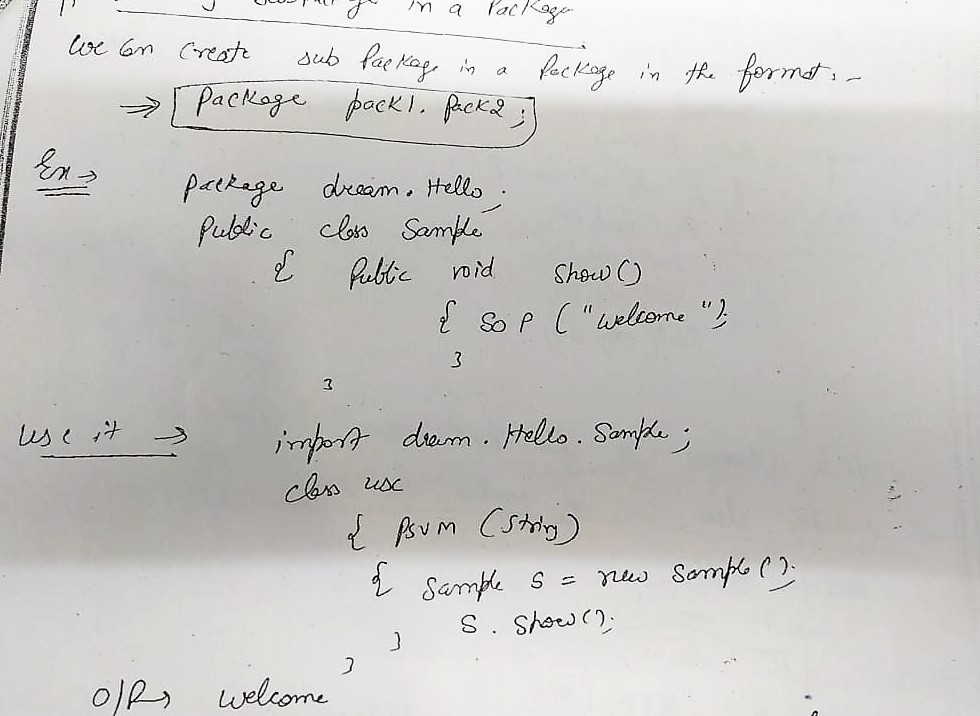 in a Package
We can create sub Package in a Package in the format:-
=> Package pack1. Pack2;
Ex→ package dream. Hello;
Public class Sample
{ Public void show()
{ SOP ("welcome");
}
}
use it → import dream. Hello. Sample;
class use
{ PSVM (String)
{ Sample S = new Sample();
S. Show();
}
}
O/P→ welcome